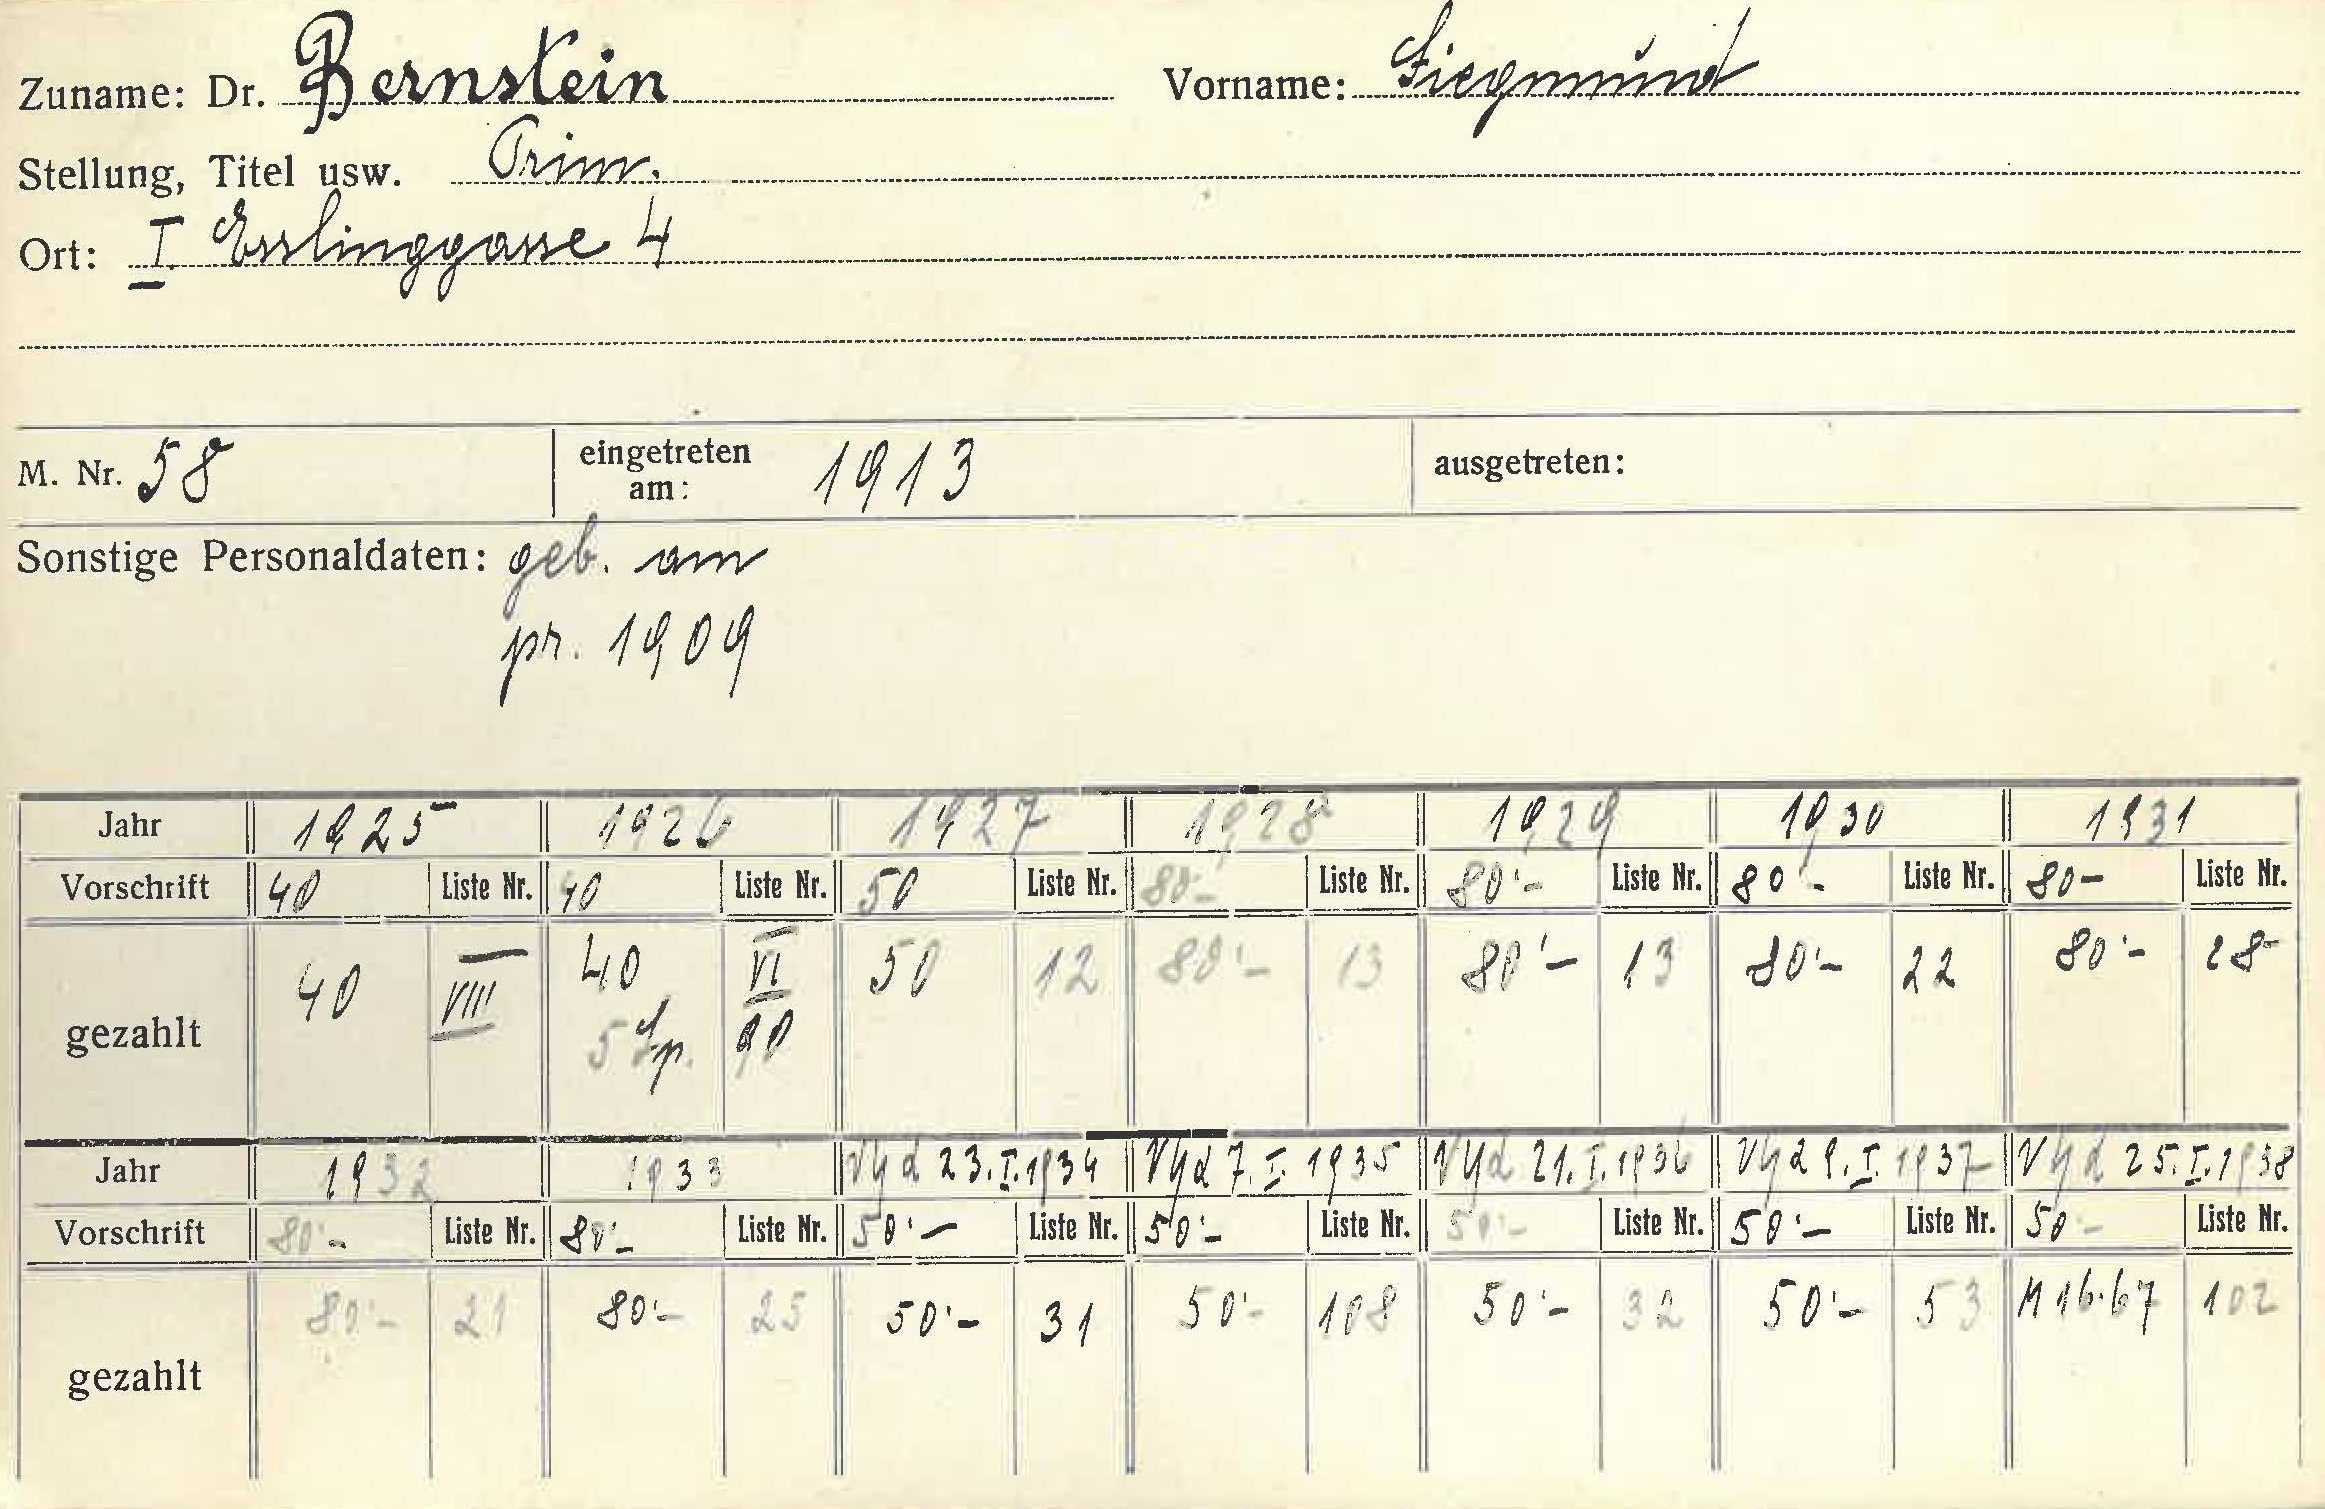 Zuname: Dr. Bernstein Vorname: Siegmund
Stellung, Titel usw. Prim.
Ort: I. Esslinggasse 4
M. Nr. 58 eingetreten am: 1913 ausgetreten:
Sonstige Personaldaten: geb. am
pr. 1909
Jahr 1925 1926 1927 1928 1929 1930 1931
Vorschrift 40 Liste Nr. 40 Liste Nr. 50 Liste Nr. 80·- Liste Nr. 80·- Liste Nr. 80·- Liste Nr. 80- Liste Nr.
gezahlt 40 VIII 40 VI 50 12 80·- 13 80·- 13 80·- 22 80·- 28
5 90
Jahr 1932 1933 23.I.1934 7.I.1935 21.I.1936 I.1937 25.I.1938
Vorschrift 80·- Liste Nr. 80·- Liste Nr. 50·- Liste Nr. 50·- Liste Nr. 50·- Liste Nr. 50·- Liste Nr. 50·- Liste Nr.
gezahlt 80·- 21 80·- 25 50·- 31 50·- 108 50·- 32 50·- 53 16·67 102